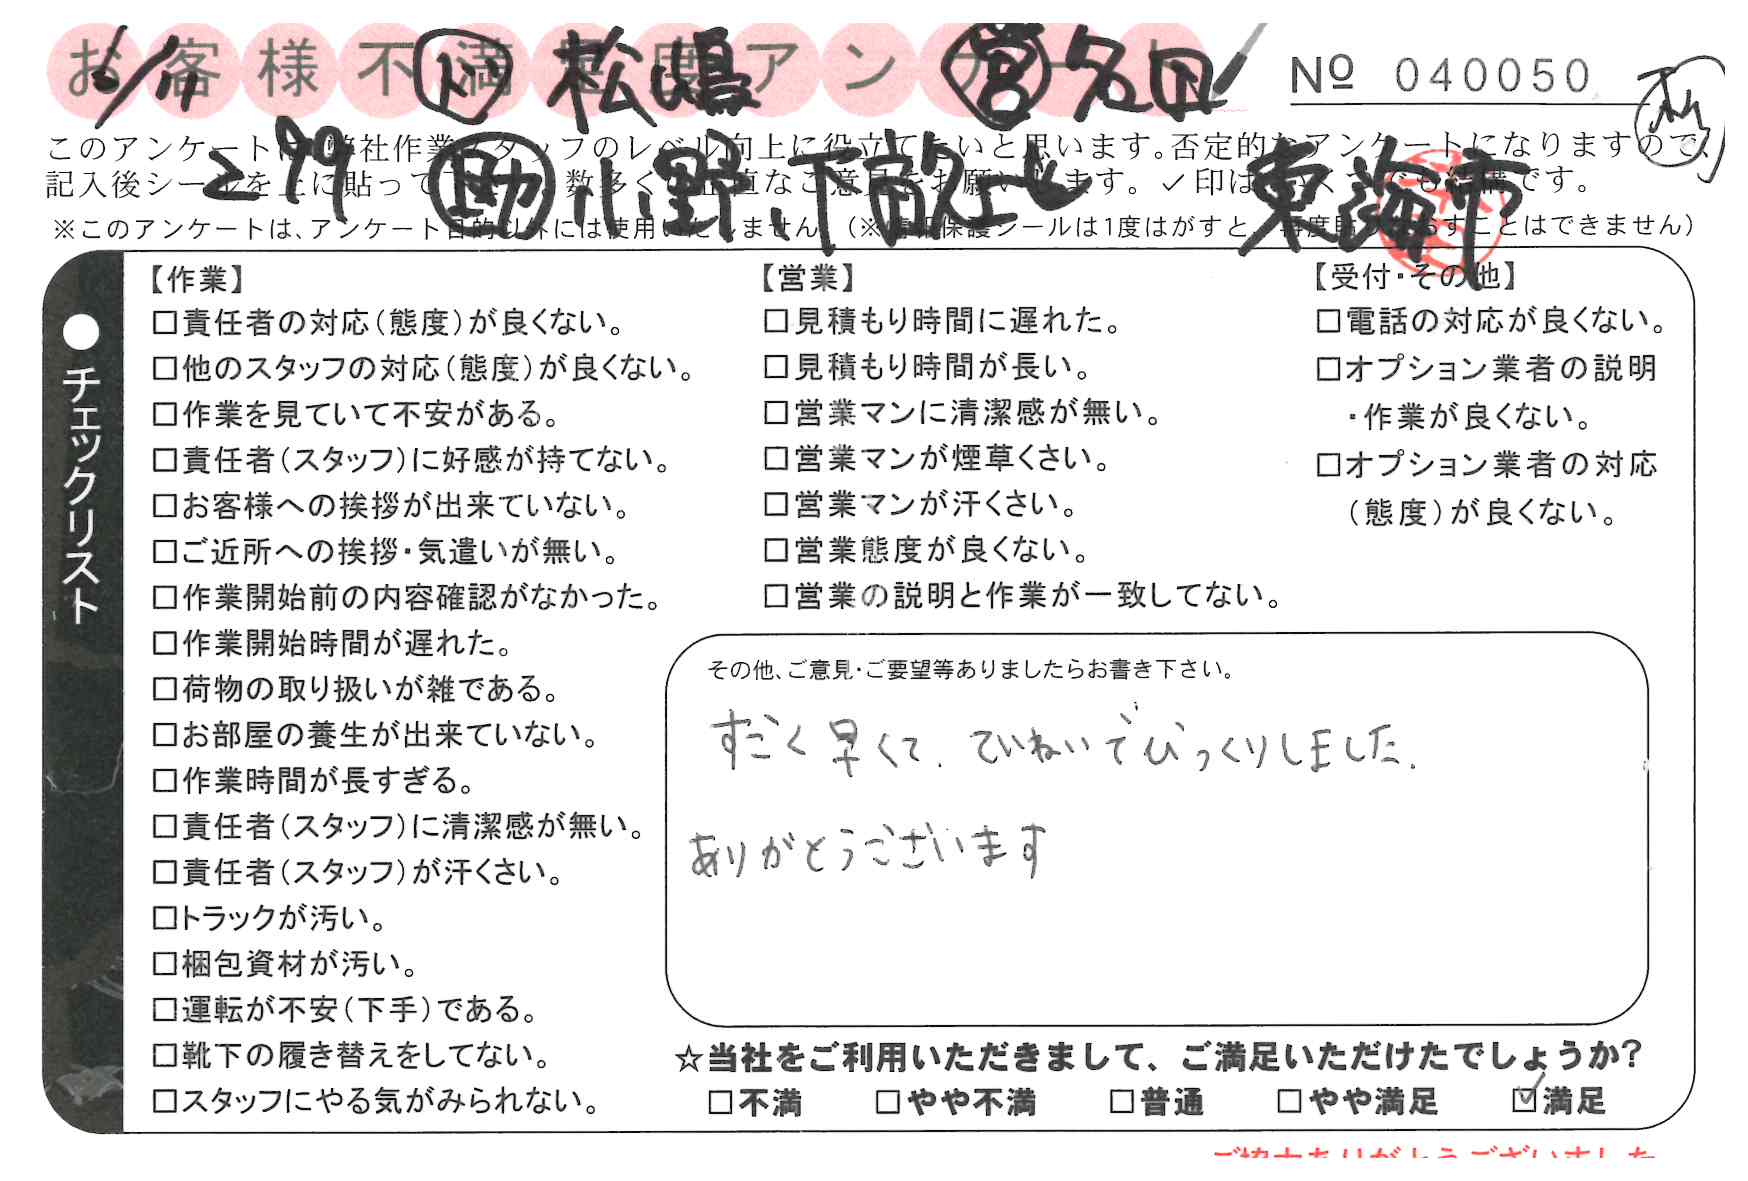 お客様不満足度アンケート
№ 040050
6/11 ド 松嶋 営 名田
279 助 小野、下前 東海市
このアンケートは、弊社作業スタッフのレベル向上に役立てたいと思います。否定的なアンケートになりますので、
記入後シールを上に貼って下さい。数多くの正直なご意見をお願いします。✓印はいくつでも結構です。
※このアンケートは、アンケート目的以外には使用いたしません。(※情報保護シールは1度はがすと、再度貼りなおすことはできません)
●チェックリスト
【作業】
□責任者の対応(態度)が良くない。
□他のスタッフの対応(態度)が良くない。
□作業を見ていて不安がある。
□責任者(スタッフ)に好感が持てない。
□お客様への挨拶が出来ていない。
□ご近所への挨拶・気遣いが無い。
□作業開始前の内容確認がなかった。
□作業開始時間が遅れた。
□荷物の取り扱いが雑である。
□お部屋の養生が出来ていない。
□作業時間が長すぎる。
□責任者(スタッフ)に清潔感が無い。
□責任者(スタッフ)が汗くさい。
□トラックが汚い。
□梱包資材が汚い。
□運転が不安(下手)である。
□靴下の履き替えをしてない。
□スタッフにやる気がみられない。
【営業】
□見積もり時間に遅れた。
□見積もり時間が長い。
□営業マンに清潔感が無い。
□営業マンが煙草くさい。
□営業マンが汗くさい。
□営業態度が良くない。
□営業の説明と作業が一致してない。
【受付・その他】
□電話の対応が良くない。
□オプション業者の説明
・作業が良くない。
□オプション業者の対応
(態度)が良くない。
その他、ご意見・ご要望等ありましたらお書き下さい。
すごく早くて、ていねいでびっくりしました。
ありがとうございます
☆当社をご利用いただきまして、ご満足いただけたでしょうか?
□不満 □やや不満 □普通 □やや満足 ☑満足
ご協力ありがとうございました